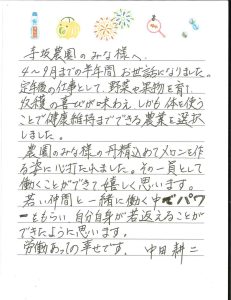 寺坂農園のみな様へ
4〜9月までの半年間お世話になりました。
定年後の仕事として、野菜や果物を育て
収穫の喜びが味わえ、しかも体を使う
ことで健康維持までできる農業を選択
しました。
農園のみな様の丹精込めてメロンを作
る姿に心打たれました。その一員として
働くことができて嬉しく思います。
若い仲間と一緒に働く中でパワ
ーをもらい自分自身が若返えることが
できたように思います。
労働あっての幸せです。 中田耕二